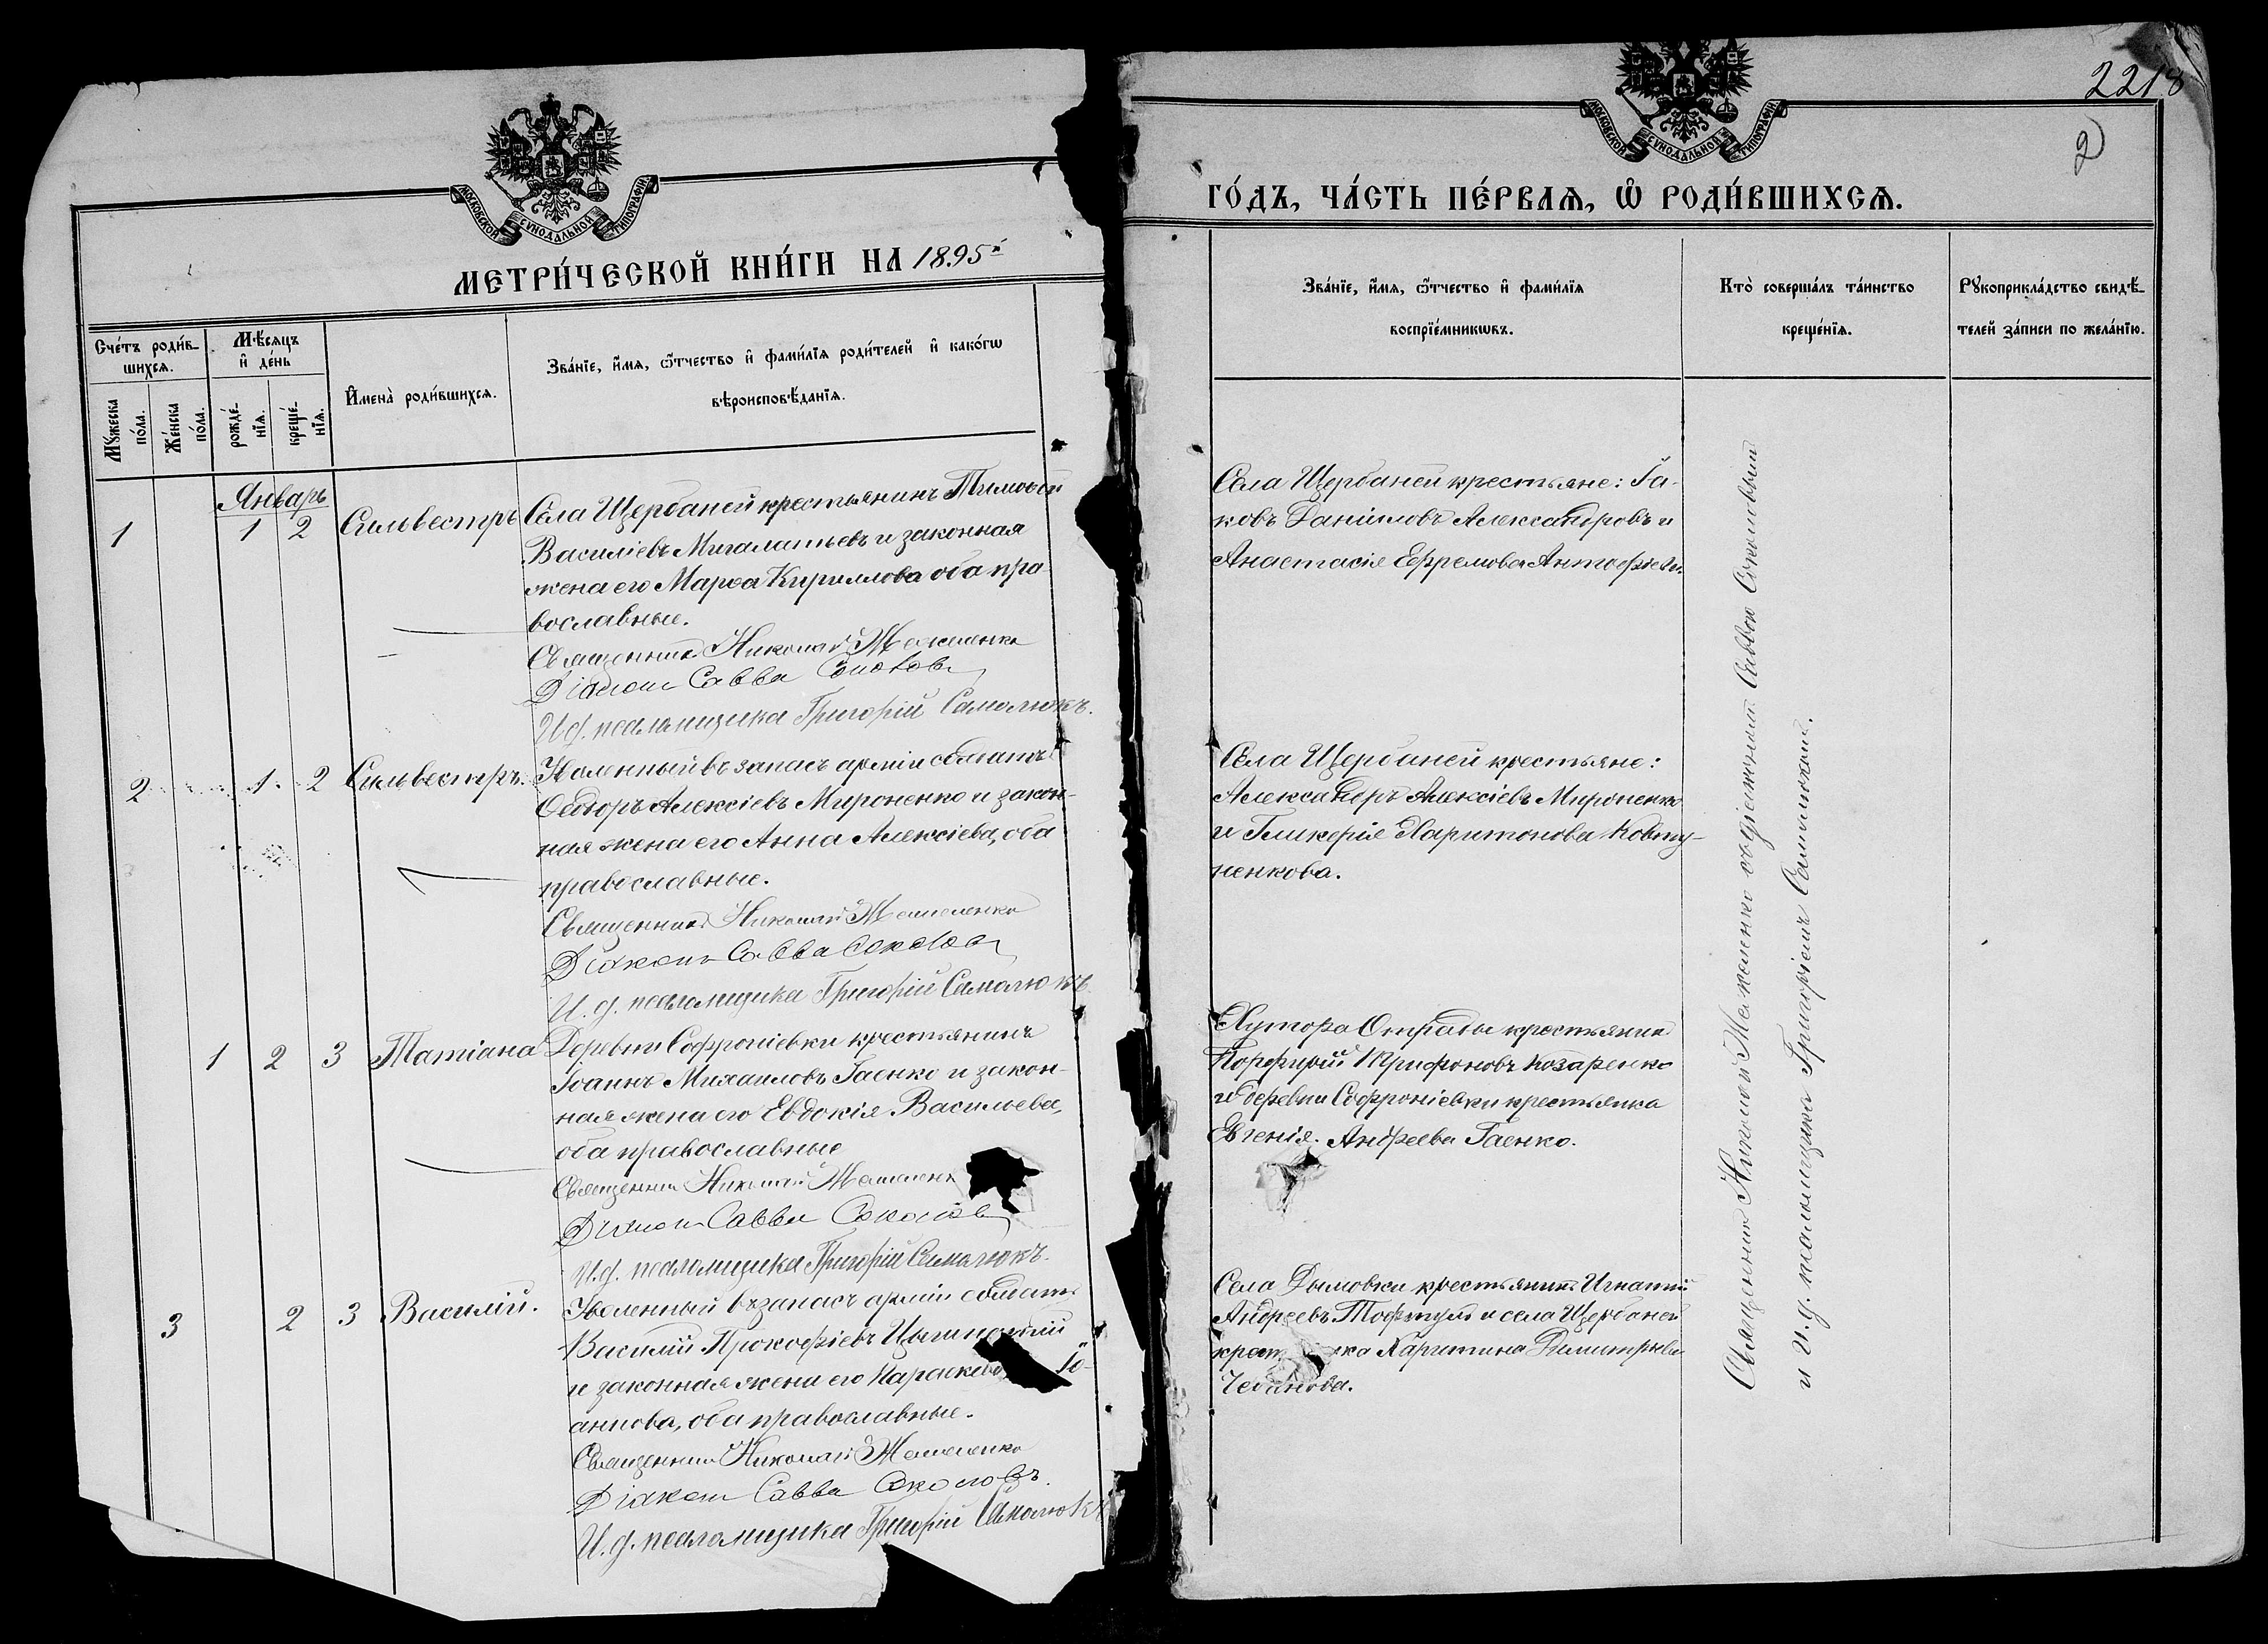 МОСКОВСКОЙ СѴНОДАЛЬНОЙ ТИПОГРАФІИ.
МЕТРИ́ЧЕСКОЙ КНИ́ГИ НА 1895й
Сче́тъ роди́в-
шихсѧ.
Мѣ́сяцъ
и҆ де́нь
Мꙋжеска
по́ла.
Же́нска
по́ла.
рожде́-
нїѧ.
креще́-
нїѧ.
И҆мена̀ роди́вшихсѧ.
Зва́нїе, и҆́мѧ, ѻ҆́тчество и҆ фами́лїѧ роди́телей и҆ како́гѡ
вѣроисповѣ́данїѧ.
Январь
1 1 2 Сильвестръ
Села Щербаней крестьянинъ Тимоѳей
Василіевъ Мигалатьевъ и законная
жена его Марѳа Кириллова оба пра-
вославные.
Священникъ Николай
Діаконъ Савва Соколовъ
И.д. псаломщика Григорій Самолюкъ.
2 1. 2 Сильвестръ.
Уволенный въ запасъ арміи солдатъ
Ѳеодоръ Алексіевъ Мироненко и закон-
ная жена его Анна Алексіева, оба
православные.
Священникъ Николай
Діаконъ Савва Соколовъ
И.д. псаломщика Григорій Самолюкъ.
1 2 3 Татіана
Деревни Софроніевки крестьянинъ
Іоаннъ Михаиловъ Гаенко и закон-
ная жена его Евдокія Васильева,
оба православные
Священникъ Николай
Діаконъ Савва Соколовъ
И.д. псаломщика Григорій Самолюкъ.
3 2 3 Василій.
Уволенный въ запасъ арміи солдатъ
Василій Прокофіевъ
и законная жена его Параскева Іо-
аннова, оба православные.
Священникъ Николай
Діаконъ Савва Соколовъ.
И.д. псаломщика Григорій Самолюкъ
2218
2
МОСКОВСКОЙ СѴНОДАЛЬНОЙ ТИПОГРАФІИ.
ГО́ДЪ, ЧА́СТЬ ПЕ́РВАѦ, Ѡ҆ РОДИ́ВШИХСѦ.
Зва́нїе, и҆́мѧ, ѻ҆́тчество и҆ фами́лїѧ
воспрїе́мникѡвъ.
Кто̀ соверша́лъ та́инство
креще́нїѧ.
Рꙋкоприкла́дство свидѣ́-
телей за́писи по жела́нїю.
Села Щербаней крестьяне: Іа-
ковъ Даніиловъ Александровъ и
Анастасія Ефремова
Села Щербаней крестьяне:
Александръ Алексіевъ Мироненко
и Гликерія Харитонова Ковту-
ненкова.
Хутора Отрады крестьянинъ
Порфирій Трифоновъ Козаренко
и деревни Софроніевки крестьянка
Евгенія Андреева Гаенко.
Села Дымовки крестьянинъ Игнатій
Андреевъ и села Щербаней
крест ка Харитина Димитріева
Чебанова.
Священникъ Николай съ діакономъ Саввою Соколовым
и И.д. псаломщика Григоріемъ Самолюкомъ.